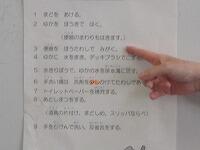 1 まどを あける。
2 ゆかを ほうきで はく。
(便器のまわりもはきます。)
3 便器を ほうたわしで みがく。
4 ゆかに 水をまき、デッキブラシでこする。
5 水きりぼうで、ゆかの水を排水溝に流す。
6 手洗い場は、洗剤をつけてたわしで
7 トイレットペーパーを補充する。
8 あとしまつをする。
(道具の片付け、まどしめ、スリッパならべ)
9 手を石けんで洗い、反省会をする。